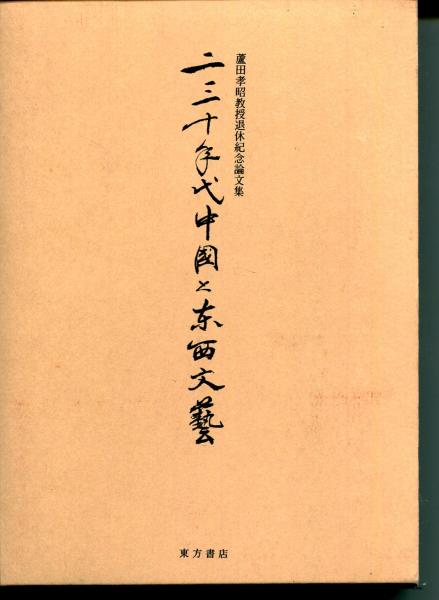 蘆田孝昭教授退休紀念論文集
二三十年代中國と东西文藝
東方書店